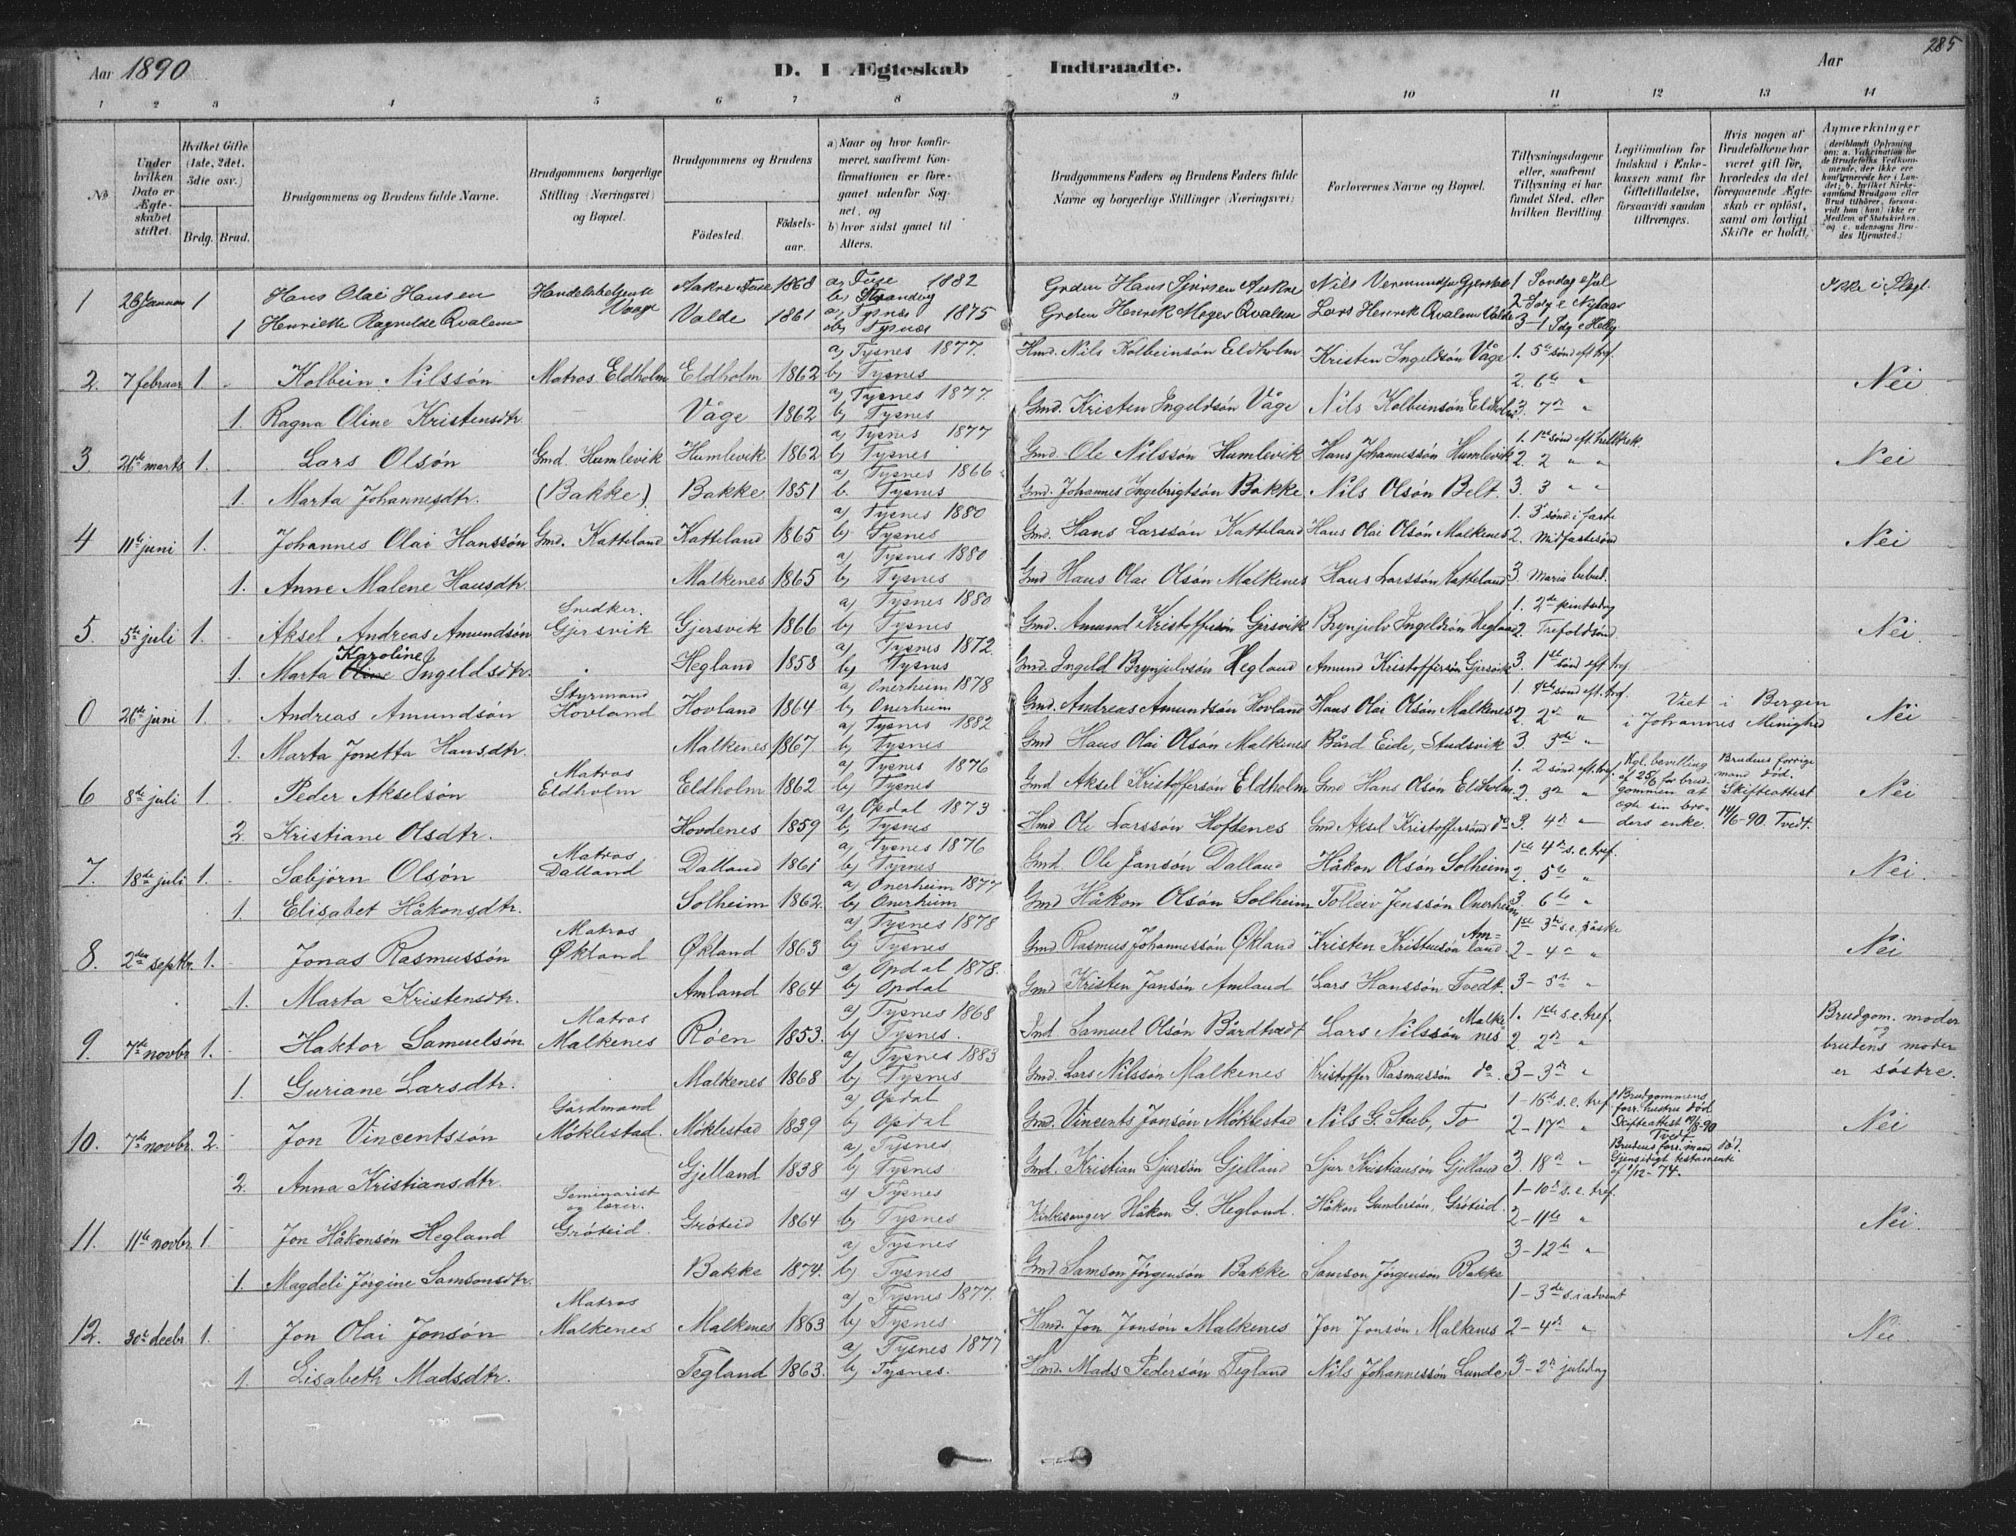 285
Aar 1890
D. I Ægteskab Indtraadte.
Aar
1 2 3 4 5 6 7 8 9 10 11 12 13 14
No
Under hvilken Dato er Ægteskabet stiftet.
Hvilket Gifte (1ste, 2det. 3die osv.)
Brdg. Brud.
Brudgommens og Brudens fulde Navne.
Brudgommens borgerlige Stilling (Næringsvei) og Bopæl.
Brudgommens og Brudens
Födested. Födselsaar.
a) Naar og hvor konfirmeret, saafremt Konfirmationen er foregaaet udenfor Sognet, og
b) hvor sidst gaaet til Alters.
Brudgommens Faders og Brudens Faders fulde Navne og borgerlige Stillinger (Næringsvei)
Forlovernes Navne og Bopæl.
Tillysningsdagene eller, saafremt Tillysning ei har fundet Sted, efter hvilken Bevilling.
Legitimation for Indskud i Enkekassen samt for Giftetilladelse, forsaavidt saadan tiltrænges.
Hvis nogen af Brudefolkene har været gift før, hvorledes da det foregaaende Ægteskab er opløst, samt om lovligt Skifte er holdt.
Anmærkninger
(deriblandt Oplysning om: a. Vakcination for de Brudefolks Vedkommende, der ikke ere konfirmerede her i Landet; b. hvilket Kirkesamfund Brudgom eller Brud tilhörer, forsaavidt han (hun) ikke er Medlem af Statskirken, og c. udensogns Brudes Hjemsted.)
1 28 Januar 1 Hans Olai Hansen Handelsbetjente Vaage Aakre Fuse 1868 a) Fuse 1882 b) Strandvig Hans Aakre Nils 1 Søndag e Jul
1 Henrikke Ragnilde Qvalem Valde 1861 a) Tysnæs 1875 b) Tysnæs Henrik Meyer Qvalem Lars Henrik Qvalem Valde
2. 7 februar 1. Kolbein Nilssön Matros Eldholm Eldholm 1862 a) Tysnes 1877. b) Tysnes Hmd. Nils Kolbeinsön Eldholm Kristen Ingeldsön Våge 1. 5te sönd eft. tref. 2. 6te " Nei
1. Ragna Oline Kristensdtr. Våge 1862 a) Tysnes 1877. b) Tysnes Gmd. Kristen Ingeldsön Våge Nils Kolbeinsön Eldholm 3. 7de "
3 26de marts 1. Lars Olsön Gmd. Humlevik Humlevik 1862 a) Tysnes 1877 b) Tysnes Gmd. Ole Nilssön Humlevik Hans Johannessön Humlevik 2. 2 " " Nei
1. Marta Johannesdtr. (Bakke) Bakke 1851 a) Tysnes 1866 b. Tysnes Gmd. Johannes Ingebrigtsön Bakke Nils Olsön Belt. 3. 3 " "
4 11te juni 1. Johannes Olai Hanssön Gmd. Katteland Katteland 1865 a) Tysnes 1880 b) Tysnes Gmd. Hans Larssön Katteland Hans Olai Olsön Malkenes 1. 3 sönd i faste 2. Midfastesönd Nei
1. Anne Malene Hansdtr. Malkenes 1865 a) Tysnes 1880 b) Tysnes Gmd Hans Olai Olsön Malkenes Hans Larssön Katteland 3. Maria bebud.
5. 5te juli 1. Aksel Andreas Amundsön Snedker. Gjersvik Gjersvik 1866 a) Tysnes 1880 b) Tysnes Gmd. Amund Kristoffersön Gjersvik Brynjulv Ingeldsön Hegland 1. 2de pintsedag 2. Trefoldsönd Nei
1. Marta Oline Karoline Ingeldsdtr. Hegland 1858 a) Tysnes 1872 b) Tysnes Gmd. Ingeld Brynjulvsön Hegland Amund Kristoffersön Gjersvik 3. 1ste sönd eft. tref
0 26de juni 1. Andreas Amundsön Styrmand Hovland Hovland 1864 a) Onerheim 1878 b) Onerheim Gmd. Andreas Amundsön Hovland Hans Olai Olsön Malkenes 2. 2den " Viet i Bergen i Johannes Menighed Nei
1. Marta Jonetta Hansdtr. Malkenes 1867. a) Tysnes 1882 b) Tysnes Gmd Hans Olai Olsön Malkenes Bård Eide, Stusdvik 3. 3die "
6 8de juli 1. Peder Akselsön Matros Eldholm Eldholm 1862 a) Tysnes 1876 b) Tysnes Gmd Aksel Kristoffersön Eldholm Gmd Hans Olsön Eldholm 1. 2 sönd eft. tref. 2. 3die " Kgl. bevilling af 25/6 for brudgommen at egte sin broders enke. Brudens forrige mand död. Skifteattest 14/6-90 Tvedt. Nei
2. Kristiane Olsdtr. Hovdenes 1859 a) Opdal 1873 b) Tysnes Hmd Ole Larssön Hoftenes Gmd Aksel Kristoffersön do 3. 4de "
7. 18de juli 1. Sæbjörn Olsön Matros Dalland Dalland 1861 a) Tysnes 1876 b) Tysnes Gmd. Ole Jansön Dalland Håkon Olsön Solheim 1ste 4de s.e. tref. 2. 5te " Nei.
1. Elisabet Håkonsdtr. Solheim 1862. a) Onerheim 1877 b) Onerheim Gmd Håkon Olsön Solheim Tolleiv Jenssön Onerheim 3. 6te "
8. 2den septbr. 1. Jonas Rasmussön Matros Økland Økland 1863 a) Tysnes 1878 b) Tysnes Gmd Rasmus Johannessön Økland Kristen Kristensön Amland 1ste 3die s.e. påske 2- 4de " Nei
1. Marta Kristensdtr. Amland 1864 a) Opdal 1878. b) Opdal Gmd Kristen Jansön Amland Lars Hanssön Tvedt. 3- 5te "
9. 7de novbr. 1. Haktor Samuelsön Matros Malkenes Röen 1853. a) Tysnes 1868 b) Tysnes. Samuel Olsön Bårdtvedt Lars Nilssön Malkenes 1. 1ste s.e. tref. 2. 2den " Brudgom. moder og brudens moder er søstre.
1. Guriane Larsdtr. Malkenes 1868 a) Tysnes 1883 b) Tysnes Gmd. Lars Nilssön Malkenes Kristoffer Rasmussön do. 3- 3die "
10. 7de novbr. 2. Jon Vincentssön Gårdmand Möklestad. Möklestad 1839 a) Opdal b) Opdal Gmd. Vincents Jonsön Möklestad Nils G. Stub, To 1- 16de s.e. tref 2- 17de " Brudgommens forr. hustru död Skifteattest 19/8-90 Tvedt Nei
2. Anna Kristiansdtr. Gjelland 1838 a) Tysnes b) Tysnes Gmd. Kristian Sjursön Gjelland Sjur Kristiansön Gjelland 3. 18de " Brudens forr. mand död. Gjensidigt testamente af 1/12-74.
11. 11te novbr 1. Jon Håkonsön Hegland Seminarist og lærer. Gröteid. Gröteid 1864 a) Tysnes b) Tysnes Kirkesanger Håkon G. Hegland. Håkon Gundersön, Gröteid. 1- 10de s.e. tref. 2- 11te " Nei.
1. Magdeli Jörgine Samsonsdtr. Bakke 1874. a) Tysnes b) Tysnes Gmd Samson Jörgensön Bakke Samson Jörgensön Bakke 3- 12te "
12. 30te decbr 1. Jon Olai Jonsön Matros Malkenes Malkenes 1863 a) Tysnes 1877. b) Tysnes Hmd. Jon Jonsön Malkenes Jon Jonsön Malkenes 1- 3die s. i advent 2- 4de " Nei
1. Lisabeth Madsdtr. Tegland 1863. a) Tysnes 1877 b) Tysnes. Hmd. Mads Pedersön Tegland Nils Johannessön Lunde 3- 2den juledag